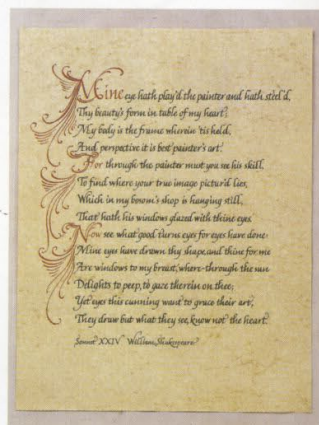 Mine eye hath play'd the painter and hath steel'd,
Thy beauty's form in table of my heart;
My body is the frame wherein 'tis held,
And perspective it is best painter's art.
For through the painter must you see his skill,
To find where your true image pictur'd lies,
Which in my bosom's shop is hanging still,
That hath his windows glazed with thine eyes.
Now see what good turns eyes for eyes have done:
Mine eyes have drawn thy shape, and thine for me
Are windows to my breast, where-through the sun
Delights to peep, to gaze therein on thee;
Yet eyes this cunning want to grace their art,
They draw but what they see, know not the heart.
Sonnet XXIV William Shakespeare